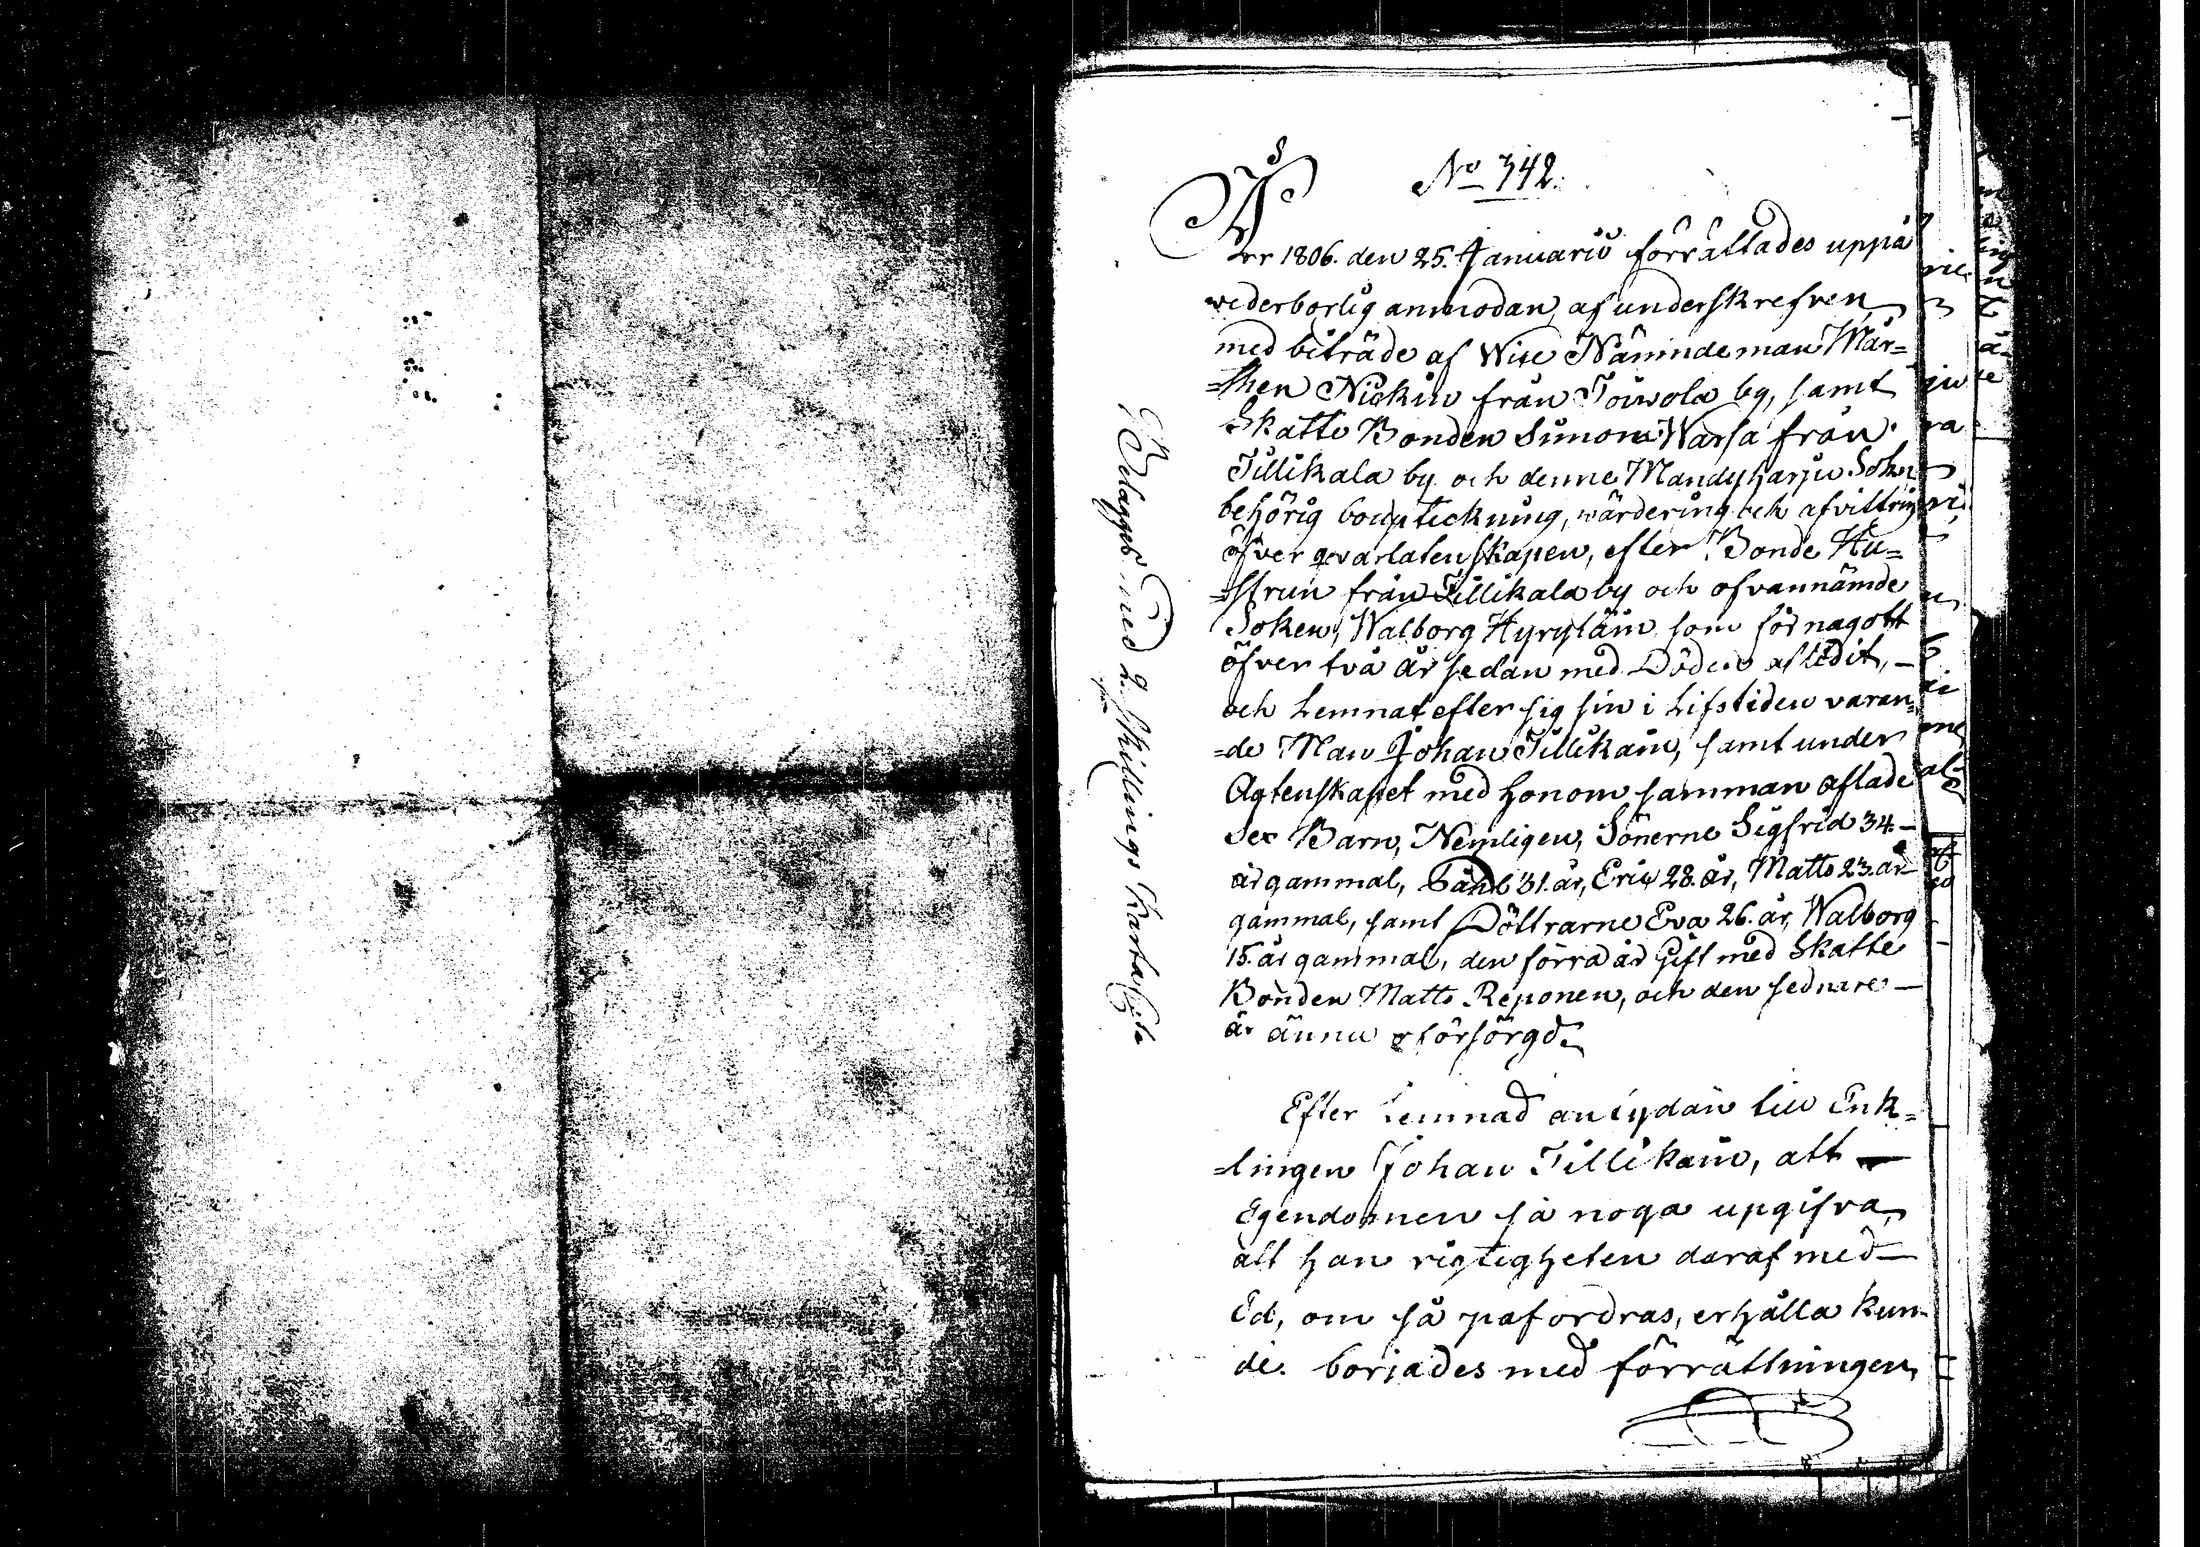 No 342.
År 1806. den 25. Januarii förrättades uppå
vederborlig anmodan, af underskrefven
med biträde af Wice Nämndeman Mår=
=then Nickin från Toiwola by, samt
Skatte Bonden Simon Warsa från
Tillikala by och denne Mandyharju Sokn
behörig bouptickning, wärdering och afvittring
öfver qvarlatenskapen, efter Bonde Hu=
=strun från Tillikala by och ofvannämde
Soken, Walborg Hyryläin som för nagott
öfver två år sedan med Döden aflidit, —
och Lemnat efter sig sin i Lifstiden varan=
=de Man Johan Tillikain, samt under
Agtenskapet med honom samman aflade
Sex Barn, Nemligen, Sönerne Sigfrid 34 —
år gammal, 31. år, Eric 28. år, Matts 23. år
gammal, samt Döttrarne Eva 26. år, Walborg
15. år gammal, den förra är Gift med Skatte
Bonden Matts Reponen, och den sednare —
är ännu oförsörgd.
Efter Lemnad antydan till Enk=
=lingen Johan Tillikain, att —
Egendomen så noga upgifva,
att han rigtigheten daraf med —
Ed, om så pafordras, erhålla kun=
de. borjades med förrättningen,
Belagges med 2. Skillings Karta